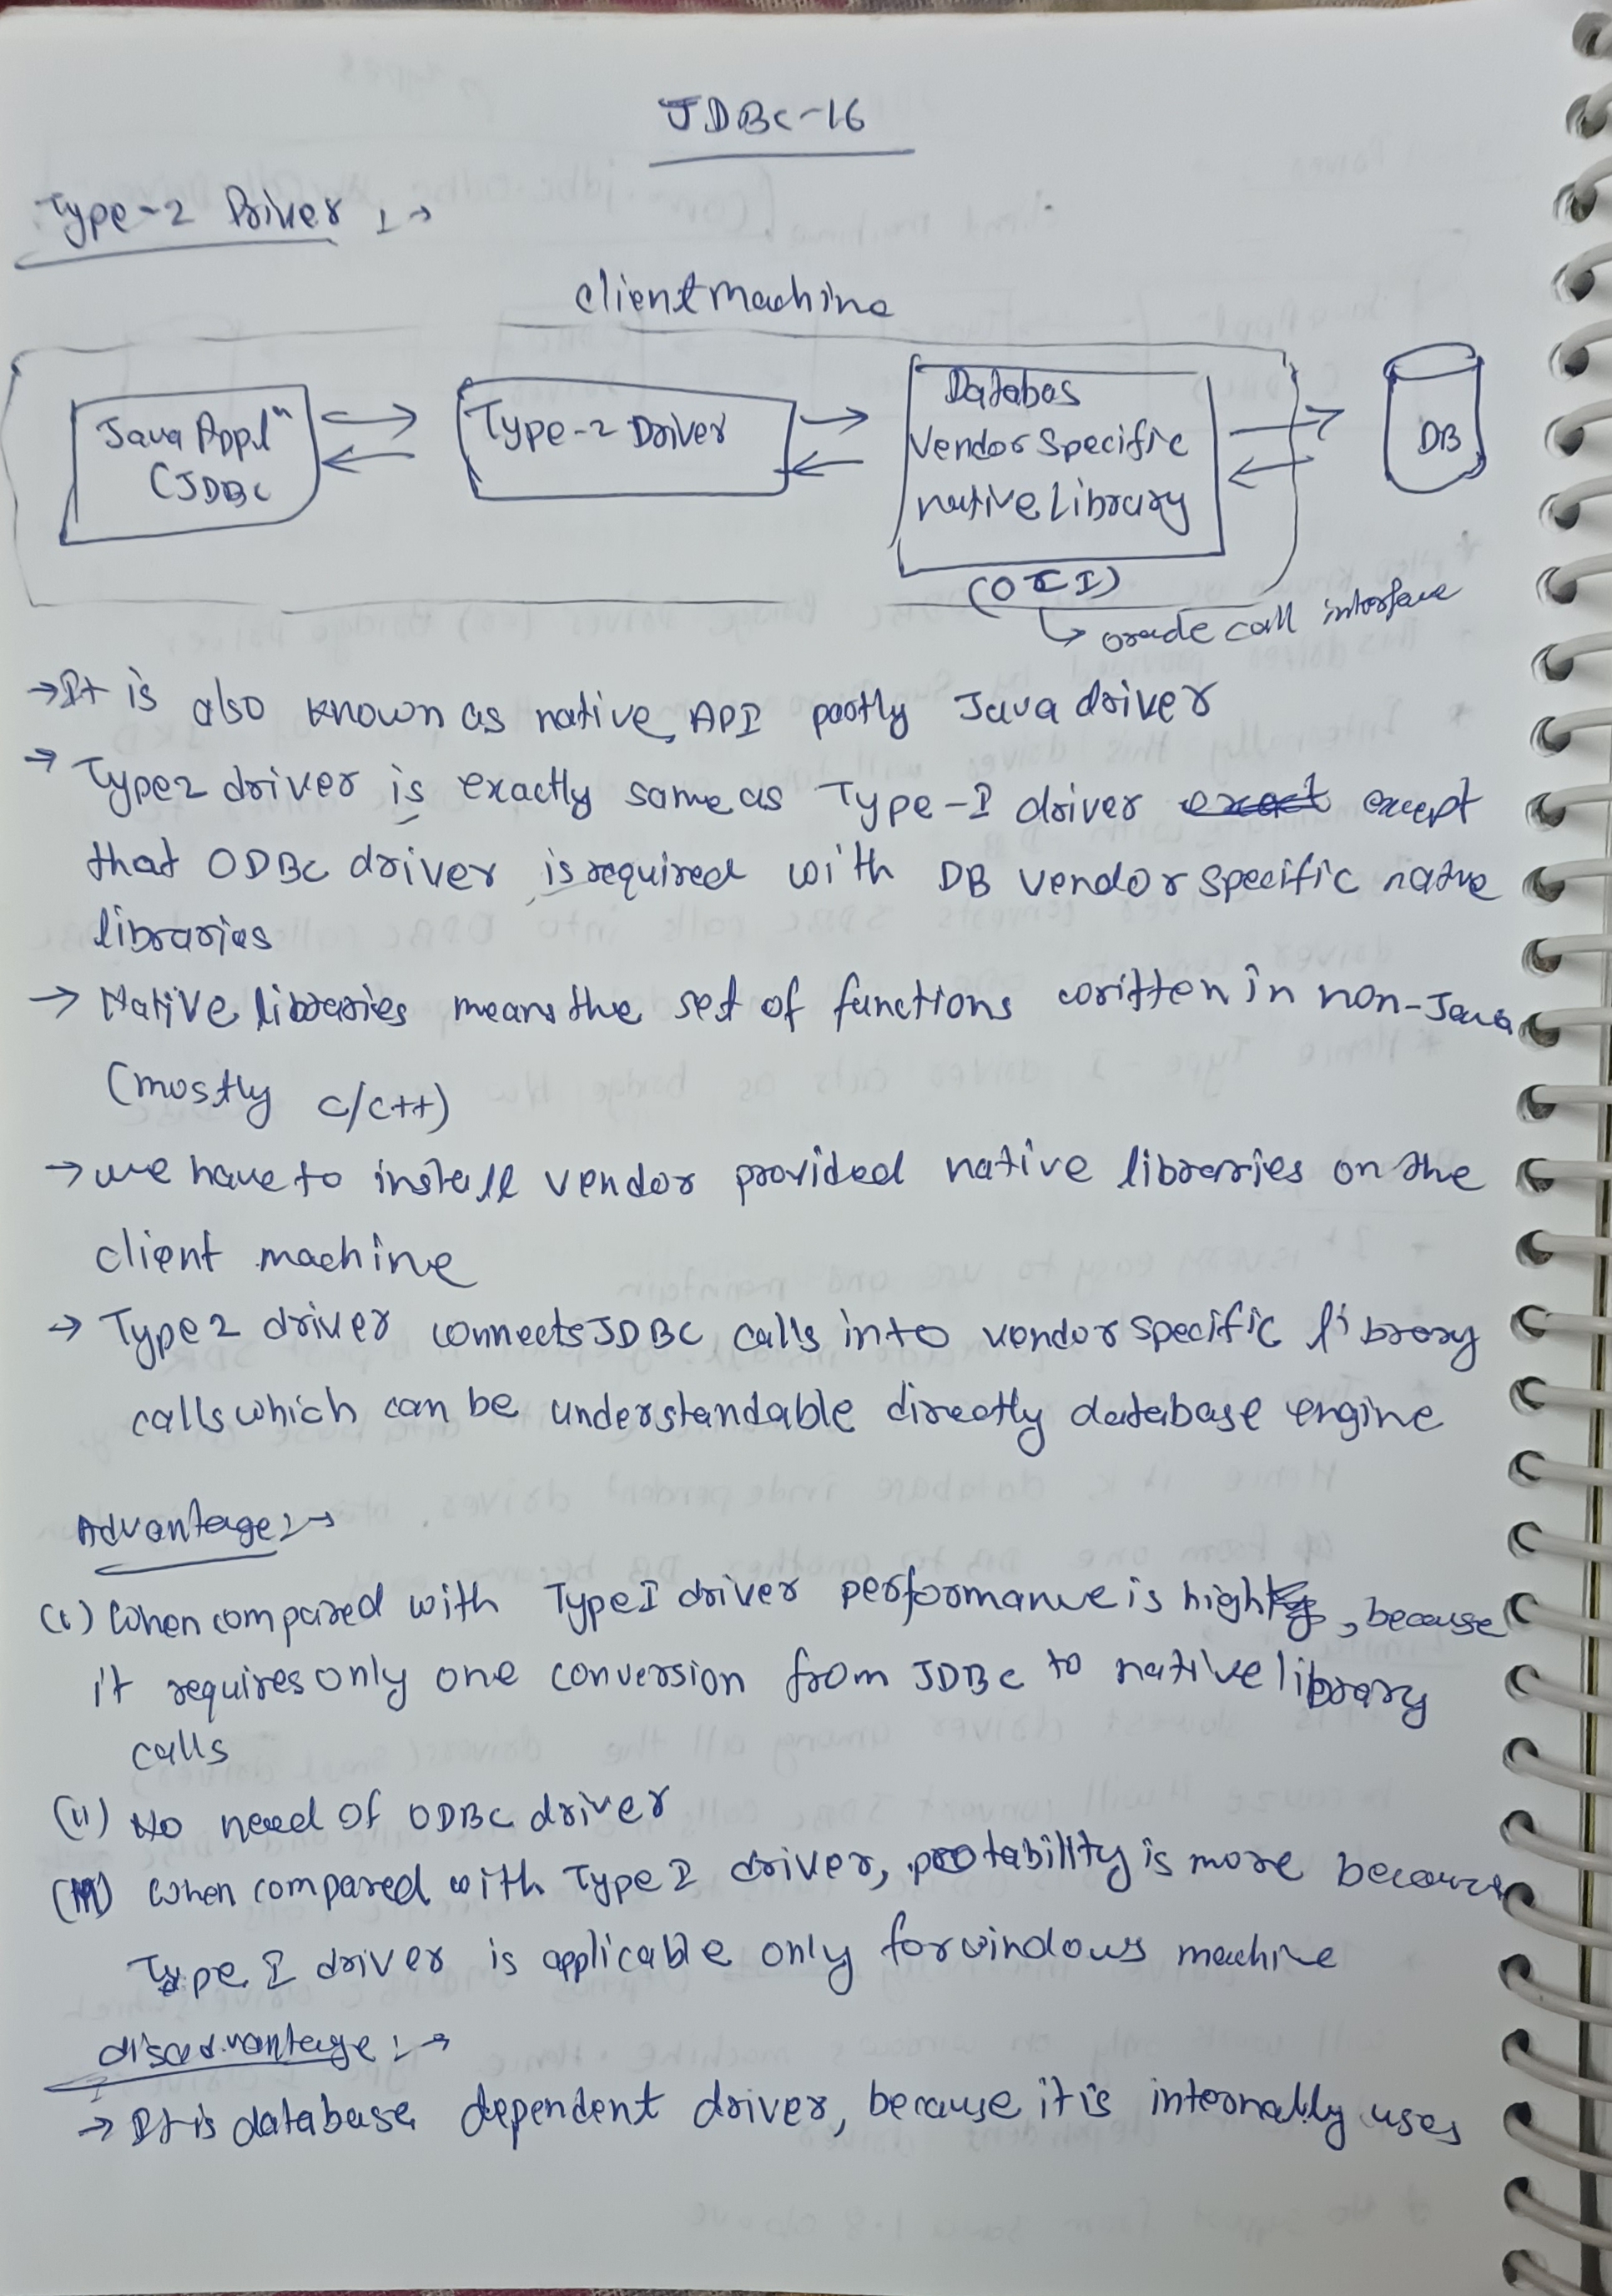 JDBC-16
Type-2 Driver :→
client machine
Java Appln
(JDBC
Type-2 Driver
Databas
Vendor Specific
native Library
DB
(OCI)
↳ oracle call interface
→ It is also known as native API partly Java driver
→ Type2 driver is exactly same as Type-I driver except
that ODBC driver is required with DB vendor specific native
libraries
→ Native libraries means the set of functions written in non-Java
(mostly c/c++)
→ we have to install vendor provided native libraries on the
client machine
→ Type 2 driver connects JDBC calls into vendor specific library
calls which can be understandable directly database engine
Advantage :→
(i) When compared with Type I driver performance is high, because
it requires only one conversion from JDBC to native library
calls
(ii) No need of ODBC driver
(iii) When compared with Type I driver, protability is more because
Type I driver is applicable only for windows machine
disadvantage :→
→ It is database dependent driver, because it is internally uses